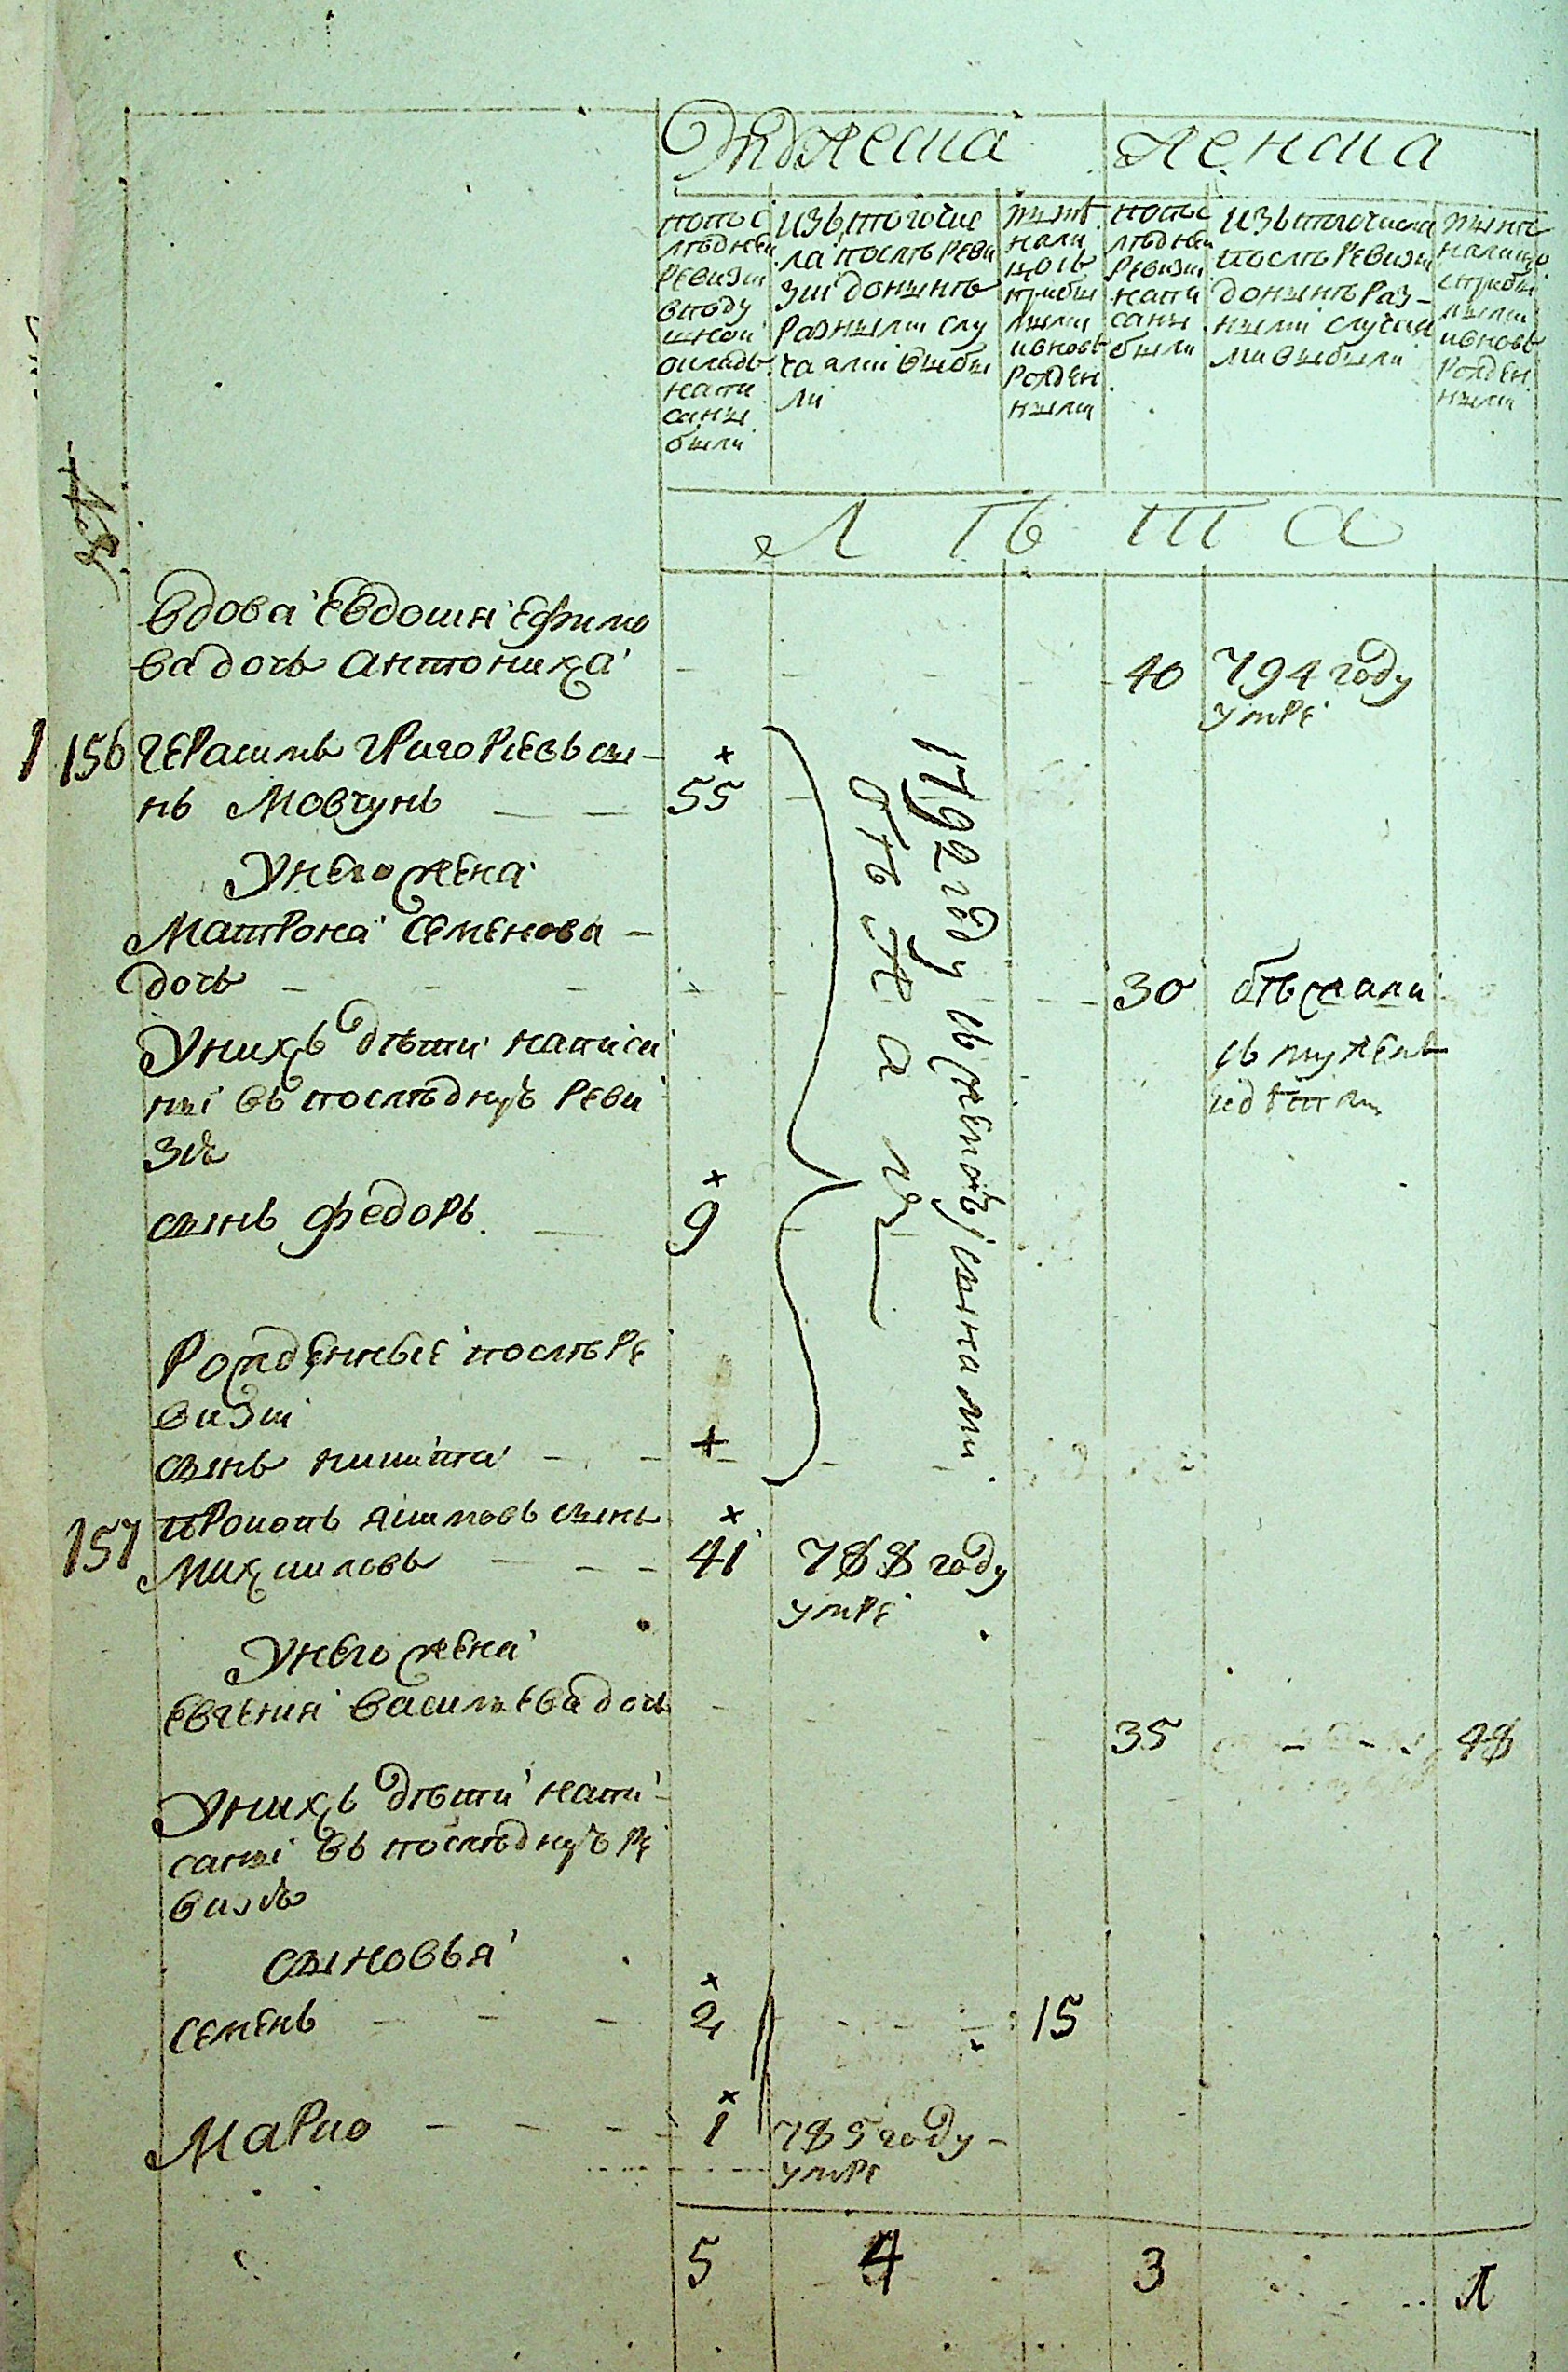 Мужеска женска
по пос
лѣдней
ревизіи
в поду
шной
окладъ
напи
саны
были
изь того чис
ла послѣ реви
зіи до нынѣ
разными слу
чаями выбы
ли
ныне
нали
цось
прибы
лыми
и вновь
рожден
ными
по пос
лѣдней
ревизіи
напи
саны
были
изь того числа
послѣ ревизіи
до нынѣ раз-
ными случая
ми выбыли
ныне
налицо
с прибы
лыми
и вновь
рожден
ными
№
Л ѣ т а
вдова Евдокия Ефимо
ва дочь Антониха 40 794 году
умре
1 156 Герасимь Григориевь сы-
нь Мовчунь 55
У него жена
Матрона Семенова
дочь 30 бѣжали
сь мужемь
и дѣтми
1792 году сь женою и сынами
бѣжалъ
У нихь дѣти написа
ныі вь последную реви
зію
сынь Федорь 9
Рожденные послѣ ре
визіи
сынь Никита
157 Прокопь Якимовь сынь
Михаиловь 41 788 году
умре
У него жена
Евгения Васильева дочь 35 48
У нихь дѣти напи
саныі вь последную ре
визію
сыновья
Семень 2 15
Марко 1 785 году
умре
5 4 3 1